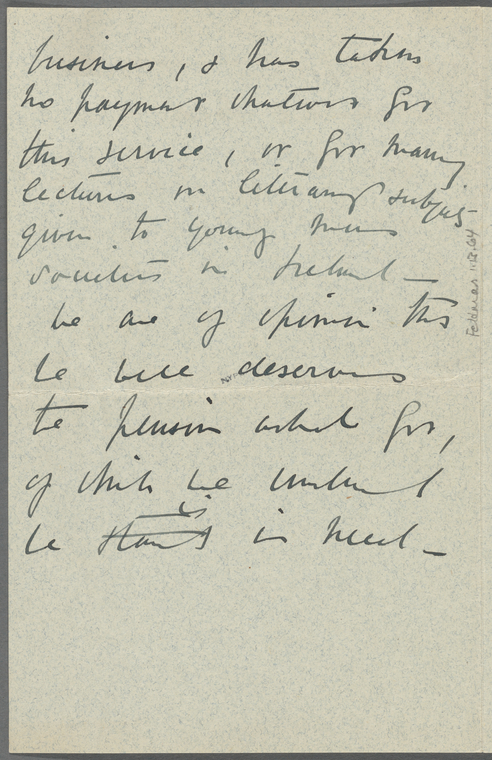 business, & has taken
no payment whatever for
this service, or for many
lectures on literary subjects
given to young mens
societies in Ireland —
We are of opinion that
he well deserves
the pension asked for,
of which we understand
he stands is in need —